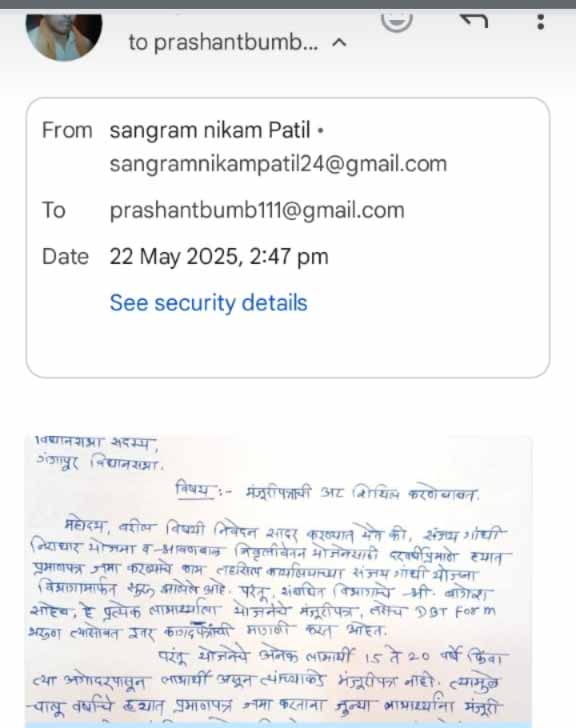 to prashantbumb...
From sangram nikam Patil •
sangramnikampatil24@gmail.com
To prashantbumb111@gmail.com
Date 22 May 2025, 2:47 pm
See security details
विधानसभा सदस्य,
गंगापूर विधानसभा.
विषय :- मंजूरीपत्राची अट शिथिल करणेबाबत.
महोदय, वरील विषयी निवेदन सादर करण्यात येते की, संजय गांधी
निराधार योजना व श्रावणबाळ निवृत्तीवेतन योजनेसाठी दरवर्षीप्रमाणे हयात
प्रमाणपत्र जमा करण्याचे काम तहसिल कार्यालयाच्या संजय गांधी योजना
विभागामार्फत सुरू झालेले आहे. परंतू, संबंधित विभागाचे श्री.
साहेब, हे प्रत्येक लाभार्थ्याला योजनेचे मंजूरीपत्र, तसेच DBT Form
भरून त्यासोबत इतर कागदपत्रांची मागणी करत आहेत.
परंतू योजनेचे अनेक लाभार्थी 15 ते 20 वर्षे किंवा
त्या अगोदरपासून लाभार्थी असून त्यांच्याकडे मंजूरीपत्र नाही. त्यामुळे
चालू वर्षाचे हयात प्रमाणपत्र जमा करताना जुन्या लाभार्थ्यांना मंजूरी